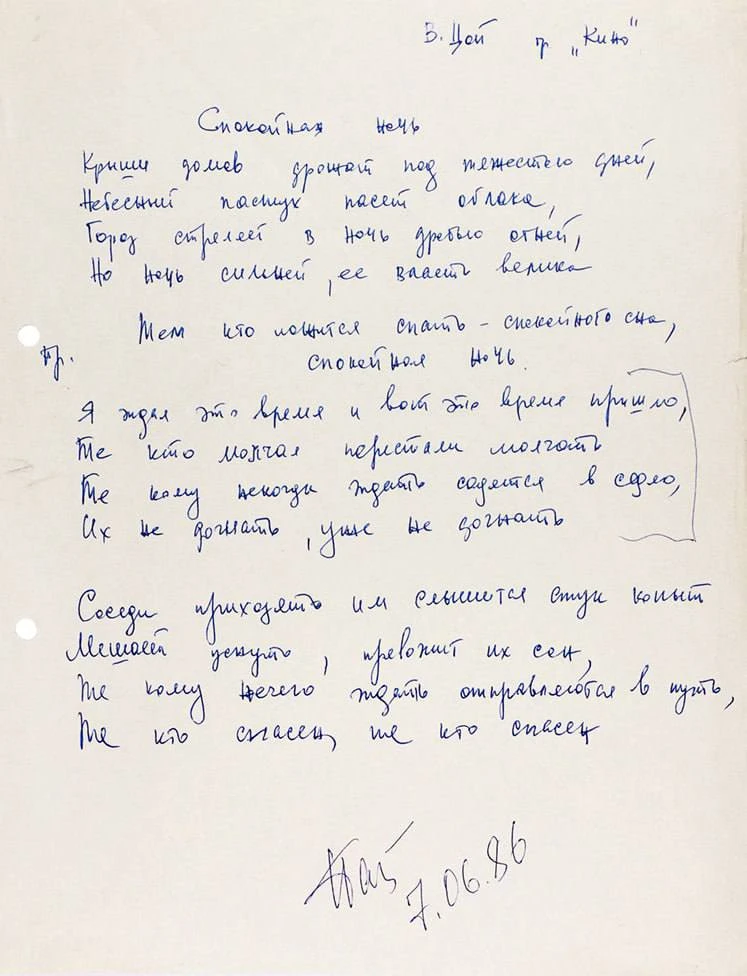 В. Цой гр „Кино"
Спокойная ночь
Крыши домов дрожат под тяжестью дней,
Небесный пастух пасет облака,
Город стреляет в ночь дробью огней,
Но ночь сильней, ее власть велика
Тем кто ложится спать - спокойного сна,
пр.
спокойная ночь.
Я ждал это время и вот это время пришло,
Те кто молчал перестали молчать
Те кому некогда ждать садятся в седло,
Их не догнать, уже не догнать
Соседи приходят им слышится стук копыт
Мешает уснуть, тревожит их сон,
Те кому нечего ждать отправляются в путь,
Те кто спасен, те кто спасен
7.06.86